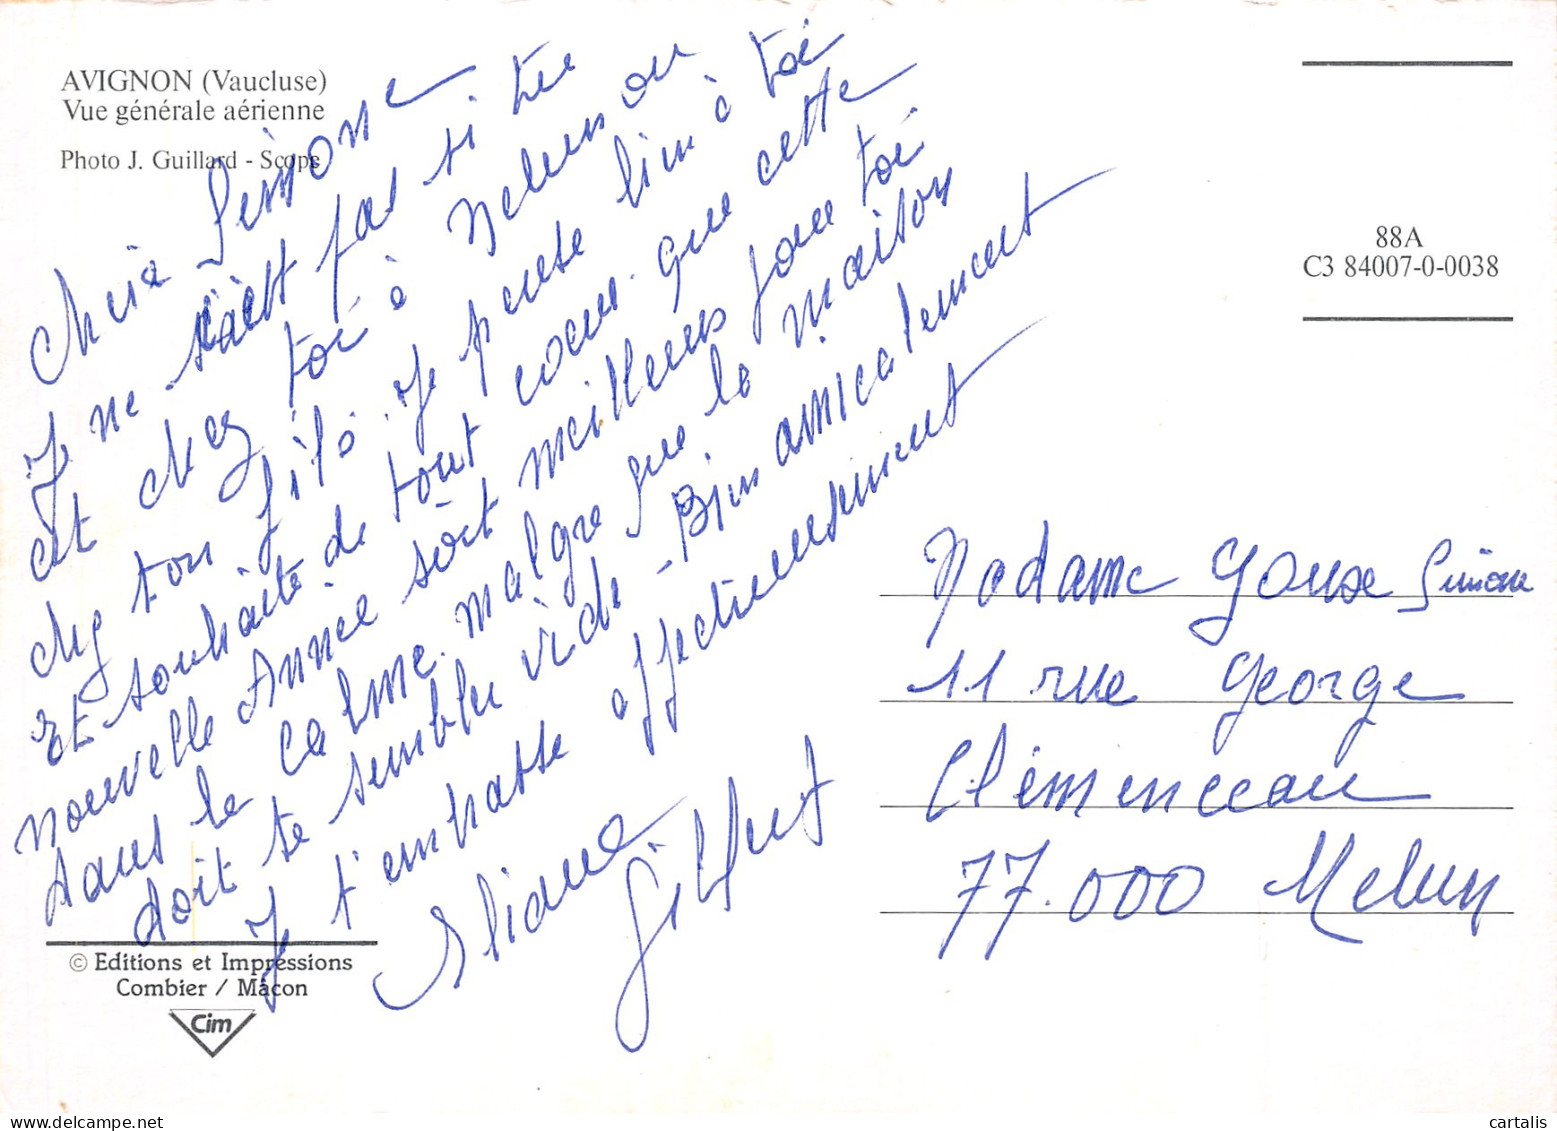 AVIGNON (Vaucluse)
Vue générale aérienne
Photo J. Guillard - Scope
Simone
Je ne sait pas si tu
et chez toi à Melun ou
chez ton fils. Je pense bien à toi
Et souhaite de tout coeur que cette
nouvelle Année soit meilleurs pour toi
dans le calme. malgre que la maison
doit te sembler vide - Bien amicalement
Je t'embrasse affectieusement
Eliane
Gilbert
© Editions et Impressions
Combier / Mâcon
Cim
88A
C3 84007-0-0038
Madame Gouse Simone
11 rue George
Clémenceau
77.000 Melun
cartalis